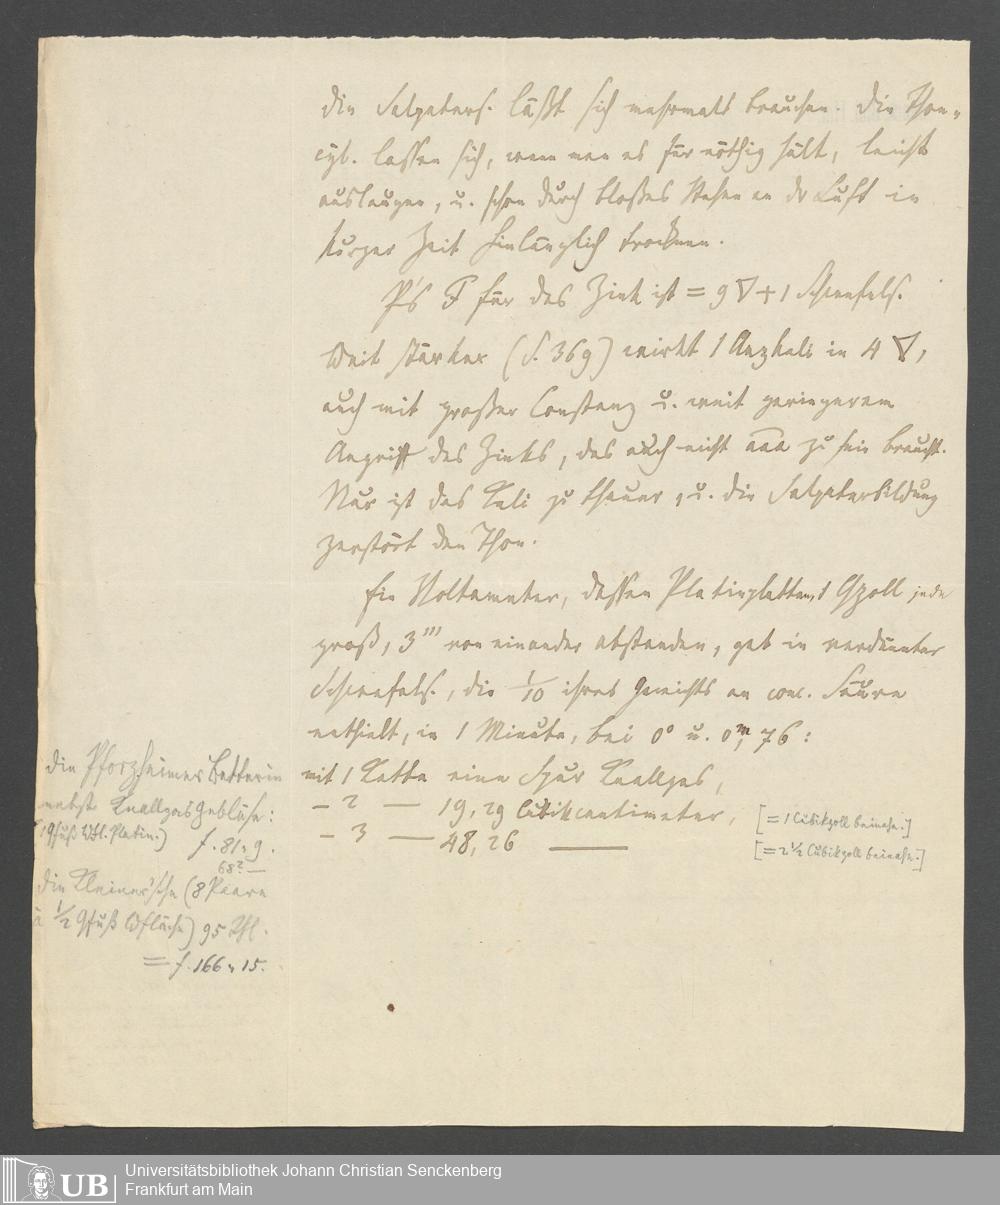 die Salpeters. läßt sich mehrmals brauchen. Die Thon-
cyl. lassen sich, wenn man es für nöthig hält, leicht
auslaugen, u. schon durch bloßes Stehen an dr Luft in
kurzer Zeit hinlänglich trocknen.
P's F für das Zink ist = 9 🜄 + 1 Schwefels.
Weit stärker (S. 369) wirkt 1 Aezkali in 4 🜄,
auch mit großer Constanz u. weit geringerem
Angriff des Zinks, das auch nicht aaa zu sein braucht.
Nur ist das Kali zu theuer, u. die Salpeterbildung
zerstört den Thon.
Ein Voltameter, dessen Platinplatten, 1 Qzoll jede
groß, 3''' von einander abstanden, gab in verdünnter
Schwefels., die 1/10 ihres Gewichts an conc. Säure
enthielt, in 1 Minute, bei 0° u. 0,m76:
mit 1 Kette eine Spur Knallgas,
– 2 — 19,29 Cubikcentimeter, [= 1 Cubikzoll beinahe.]
– 3 — 48,26 — [= 2 1/2 Cubikzoll beinahe.]
Die Pforzheimer Batterie
nebst Knallgas Gebläse:
(1 Qfuß Platin.) f. 81 „ 9.
68? —
Die Kleiner'sche (8 Paare
à 1/2 Qfuß Wfläche) 95 Thl.
= f. 166 „ 15.
UB
Universitätsbibliothek Johann Christian Senckenberg
Frankfurt am Main